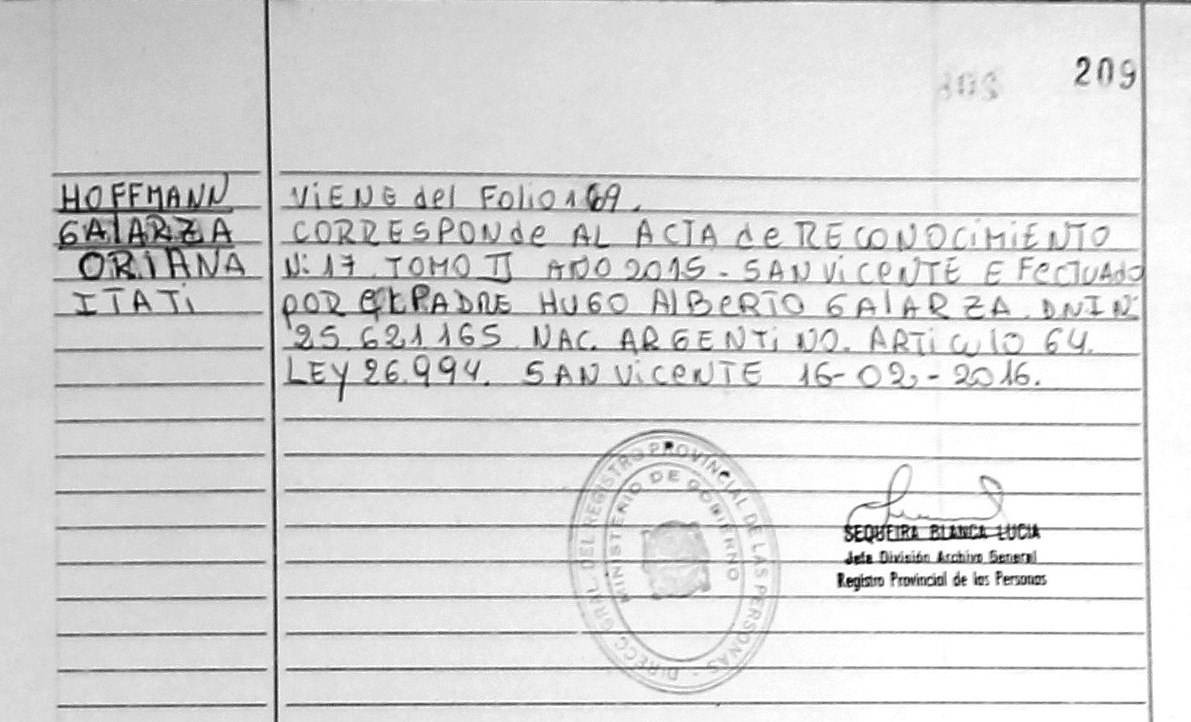 209
HOFFMANN
GALARZA
ORIANA
ITATI
VIENE del Folio 169.
CORRESPONde AL ACTA de RECONOCIMIENTO
N: 17 TOMO II AÑO 2015 - SAN VICENTE EFECTUADO
POR EL PADRE HUGO ALBERTO GALARZA. DNI N
25.621.165. NAC. ARGENTINO. ARTICULO 64.
LEY 26.994. SAN VICENTE 16-02-2016.
DIRECC. GRAL. DEL REGISTRO PROVINCIAL DE LAS PERSONAS
MINISTERIO DE GOBIERNO
SEQUEIRA BLANCA LUCIA
Jefe División Archivo General
Registro Provincial de las Personas